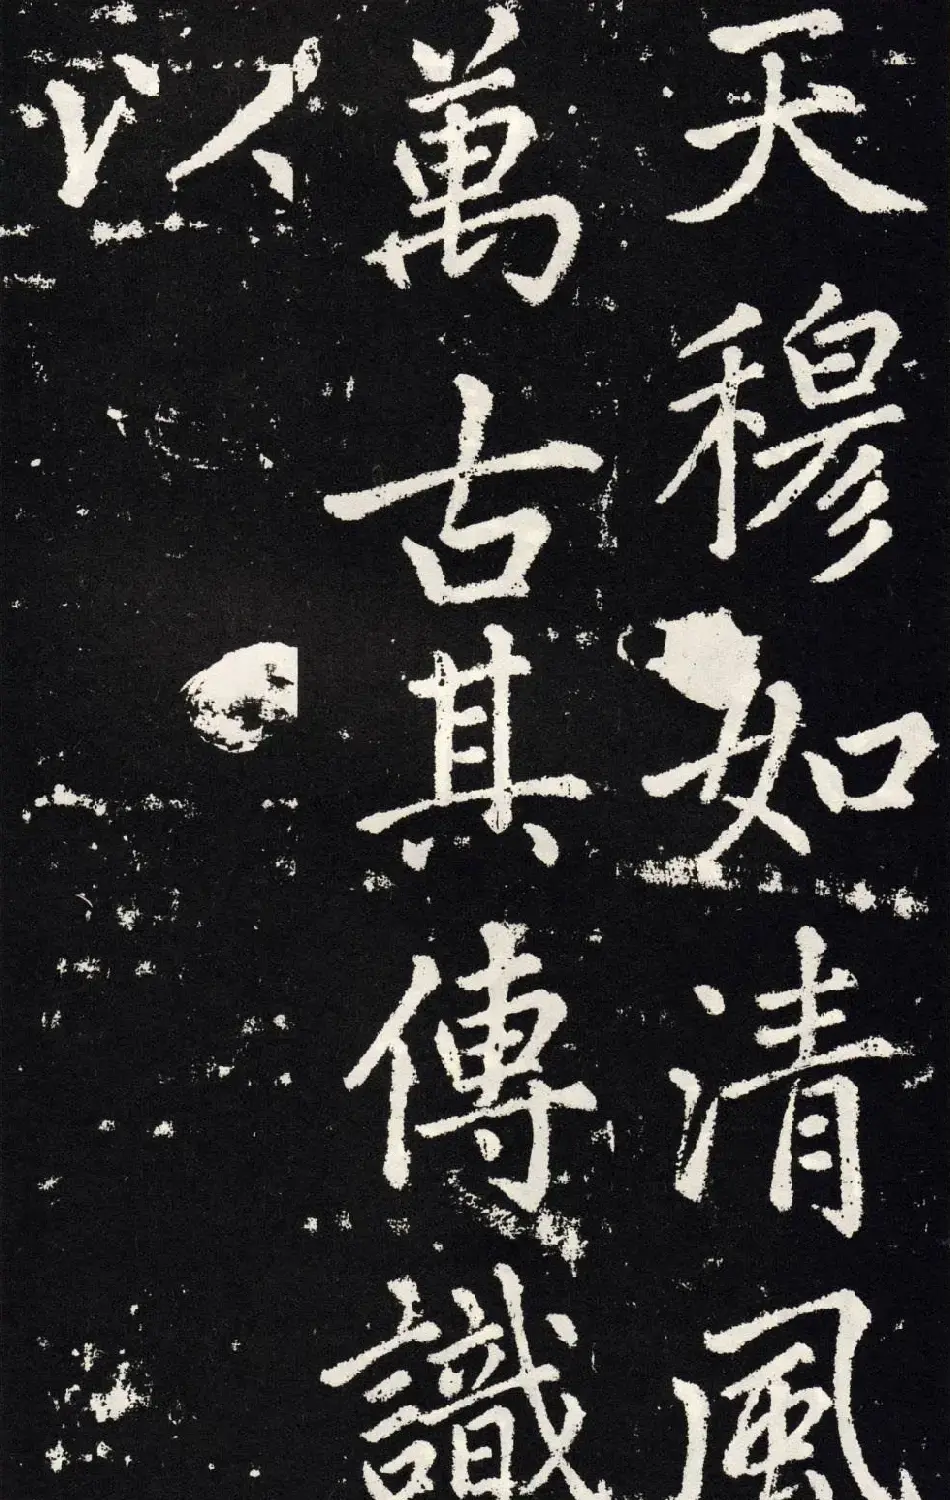 天穆如清風
萬古其傳識
以